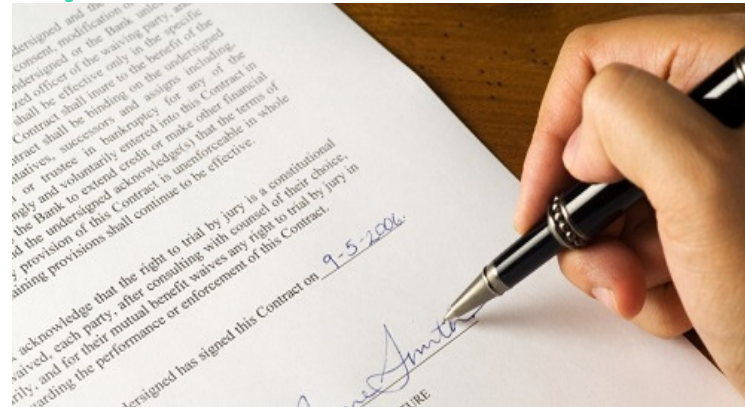 dersigned and the
consent, modification of
ndersigned or the Bank unless
ized officer of the waiving party, and
shall be effective only in the specific
Contract shall inure to the benefit of the
ntract shall be binding on the undersigned
ntatives, successors and assigns including,
or trustee in bankruptcy for any of the
ngly and voluntarily entered into this Contract in
the Bank to extend credit or make other financial
d the undersigned acknowledge(s) that the terms of
y provision of this Contract is unenforceable in whole
aining provisions shall continue to be effective.
acknowledge that the right to trial by jury is a constitutional
waived, each party, after consulting with counsel of their choice,
rily, and for their mutual benefit waives any right to trial by jury in
garding the performance or enforcement of this Contract.
dersigned has signed this Contract on 9-5-2006.
Smith
TURE